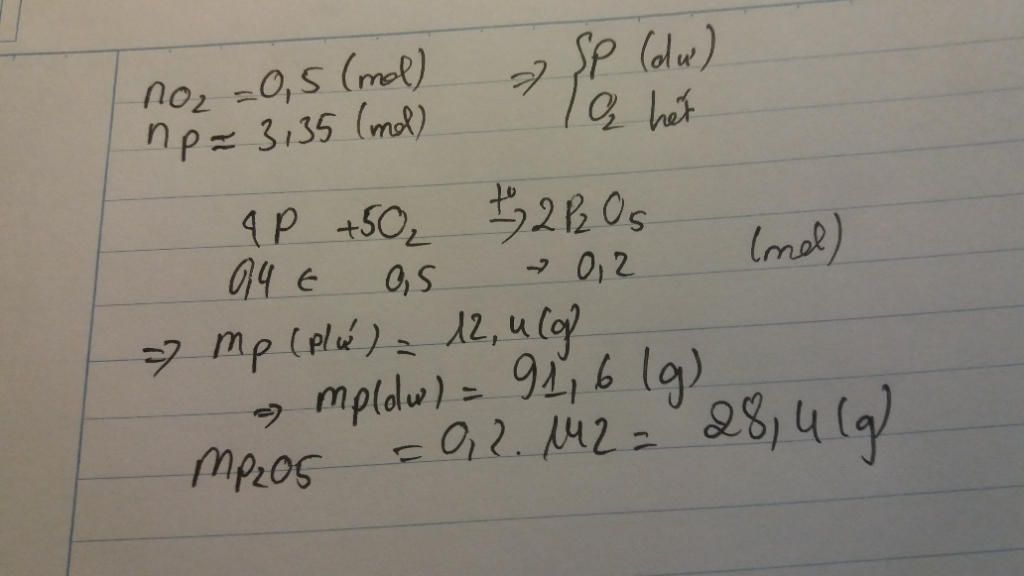 nO2 = 0,5 (mol) => { P (dư)
nP = 3,35 (mol) O2 hết
4P + 5O2 t°→ 2P2O5
0,4 ← 0,5 → 0,2 (mol)
=> mP (pứ) = 12,4 (g)
=> mP(dư) = 91,6 (g)
mP2O5 = 0,2 . 142 = 28,4 (g)